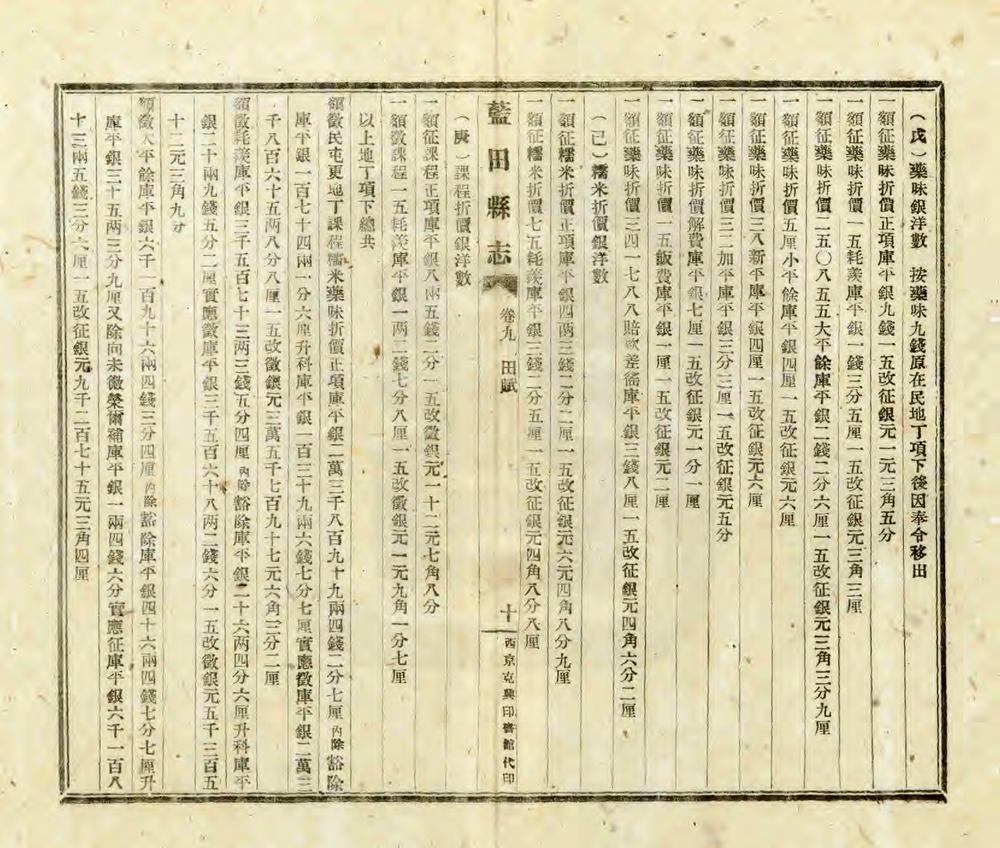 （戊）藥味銀洋數　按藥味九錢原在民地丁項下後因奉令移出
額征藥味折價正項庫平銀九錢一五改征銀元一元三角五分
一額征藥味折價一五耗羨庫平銀一錢三分五厘一五改征銀元三角三厘
一額征藥味折價二五〇八五五大平餘庫平銀二錢二分六厘一五改征銀元三角三分九厘
一額征藥味折價五厘小平餘庫平銀四厘一五改征銀元六厘
一額征藥味折價三八新平庫平銀四厘一五改征銀元六厘
一額征藥味折價三二加平庫平銀三分三厘一五改征銀元五分
一額征藥味折價解費庫平銀七厘一五改征銀元一分一厘
一額征藥味折價一五飯費庫平銀一厘一五改征銀元二厘
一額征藥味折價三四一七八八賠欵差徭庫平銀三錢八厘一五改征銀元四角六分二厘
（己）糯米折價銀洋數
一額征糯米折價正項庫平銀四兩三錢二分二厘一五改征銀元六元四角八分九厘
一額征糯米折價七五耗羨庫平銀三錢二分五厘一五改征銀元四角八分八厘
藍田縣志　卷九　田賦　十　西京克興印書館代印
（庚）課程折價銀洋數
一額征課程正項庫平銀八兩五錢二分一五改徵銀元一十二元七角八分
一額徵課程一五耗羨庫平銀一两二錢七分八厘一五改徵銀元一元九角一分七厘
以上地丁項下總共
額徵民屯更地丁課程糯米藥味折價正項庫平銀二萬三千八百九十九兩四錢二分七厘內除豁除
庫平銀一百七十四兩一分六厘升科庫平銀一百三十九兩六錢七分七厘實應徵庫平銀二萬三
千八百六十五两八分八厘一五改徵銀元三萬五千七百九十七元六角三分二厘
額徵耗羨庫平銀三千五百七十三两三錢五分四厘內除豁除庫平銀二十六两四分六厘升科庫平
銀二十兩九錢五分二厘實應徵庫平銀三千五百六十八两二錢六分一五改徵銀元五千三百五
十二元三角九分
額徵大平餘庫平銀六千一百九十六兩四錢三分四厘內除豁除庫平銀四十六兩四錢七分七厘升
庫平銀三十五两三分九厘又除向未徵榮爾補庫平銀一兩四錢六分實應征庫平銀六千一百八
十三兩五錢三分六厘一五改征銀元九千二百七十五元三角四厘